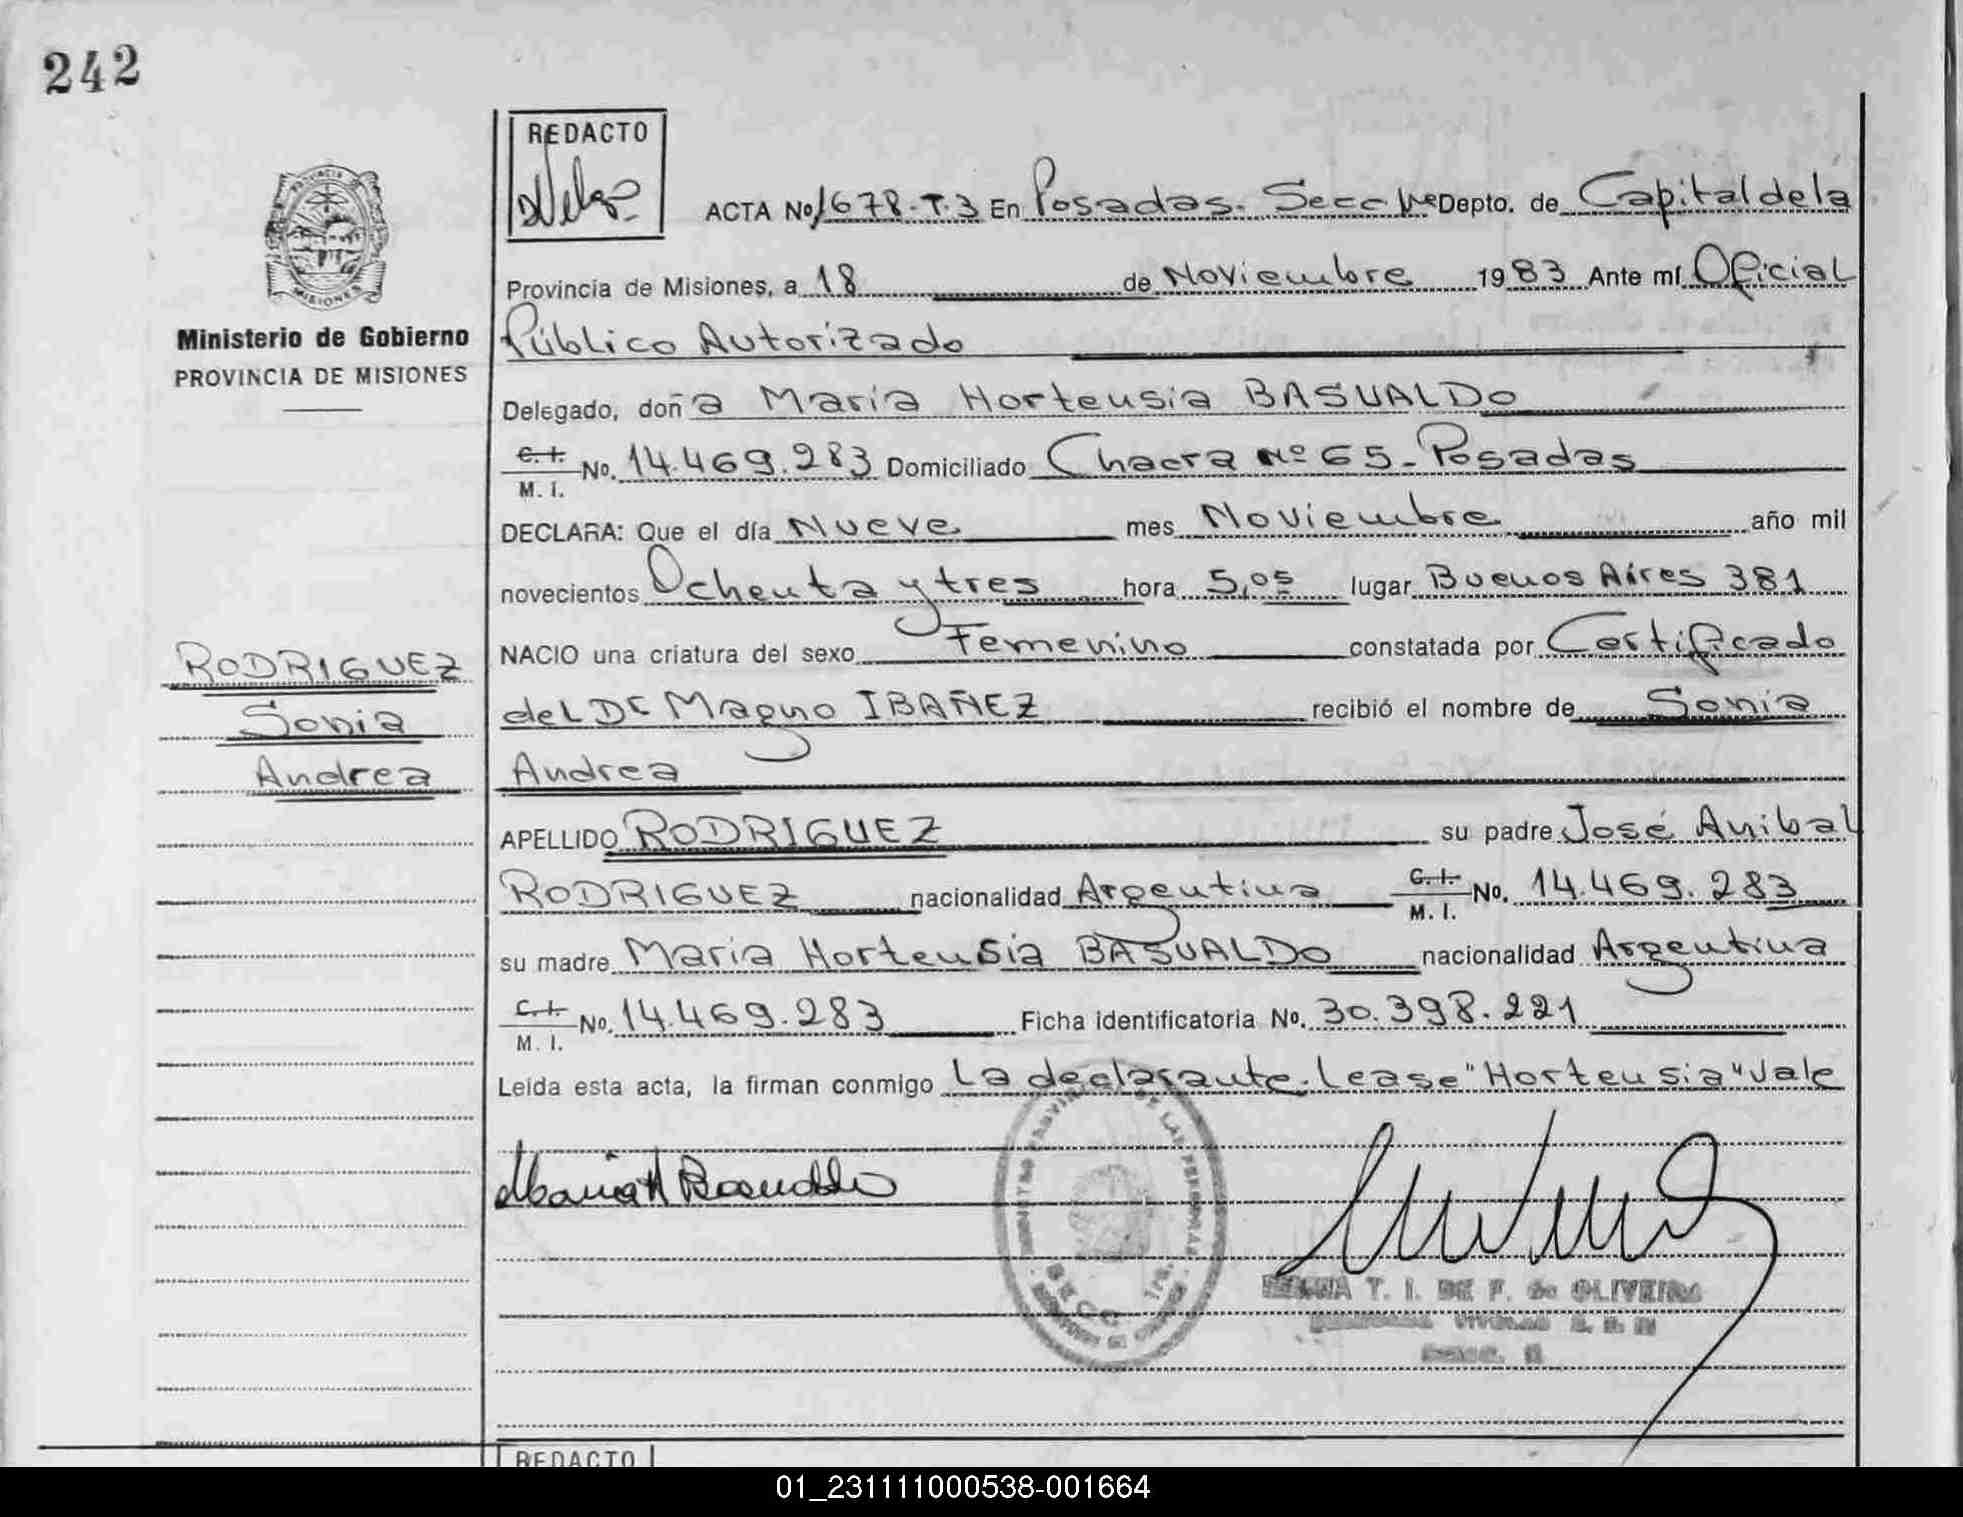 242
REDACTO
ACTA No 1678-T.3 En Posadas- Secc 1ª Depto. de Capital de la
Provincia de Misiones, a 18 de Noviembre 1983 Ante mí Oficial
Ministerio de Gobierno
PROVINCIA DE MISIONES
Público Autorizado
Delegado, doña Maria Hortensia BASUALDO
C.I. M.I. No. 14.469.283 Domiciliado Chacra Nº 65-Posadas
DECLARA: Que el día Nueve mes Noviembre año mil
novecientos Ochenta y tres hora 5,05 lugar Buenos Aires 381
NACIO una criatura del sexo Femenino constatada por Certificado
RODRIGUEZ
Sonia
Andrea
del Dr Magno IBAÑEZ recibió el nombre de Sonia
Andrea
APELLIDO RODRIGUEZ su padre José Anibal
RODRIGUEZ nacionalidad Argentina C.I. M.I. No. 14.469.283
su madre Maria Hortensia BASUALDO nacionalidad Argentina
C.I. M.I. No. 14.469.283 Ficha identificatoria No. 30.398.221
Leída esta acta, la firman conmigo La declarante. Lease "Hortensia" Vale
Maria H Basualdo
T. I. DE F. de OLIVEIRA
REDACTO
01_231111000538-001664